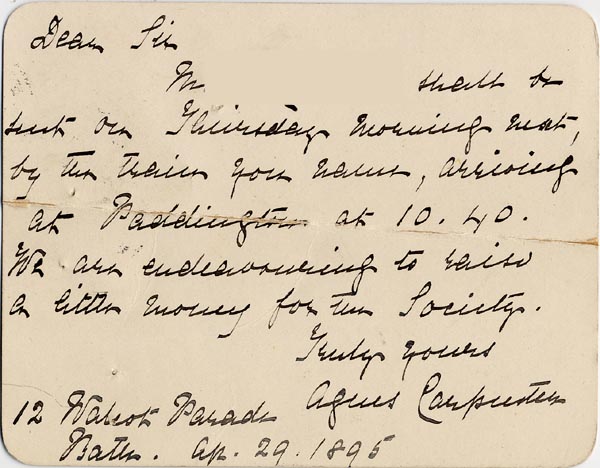 Dear Sir
M shall be
sent on Thursday morning next,
by the train you name, arriving
at Paddington at 10.40.
We are endeavouring to raise
a little money for the Society.
Truly yours
Agnes Carpenter
12 Walcot Parade
Bath. Ap. 29. 1895